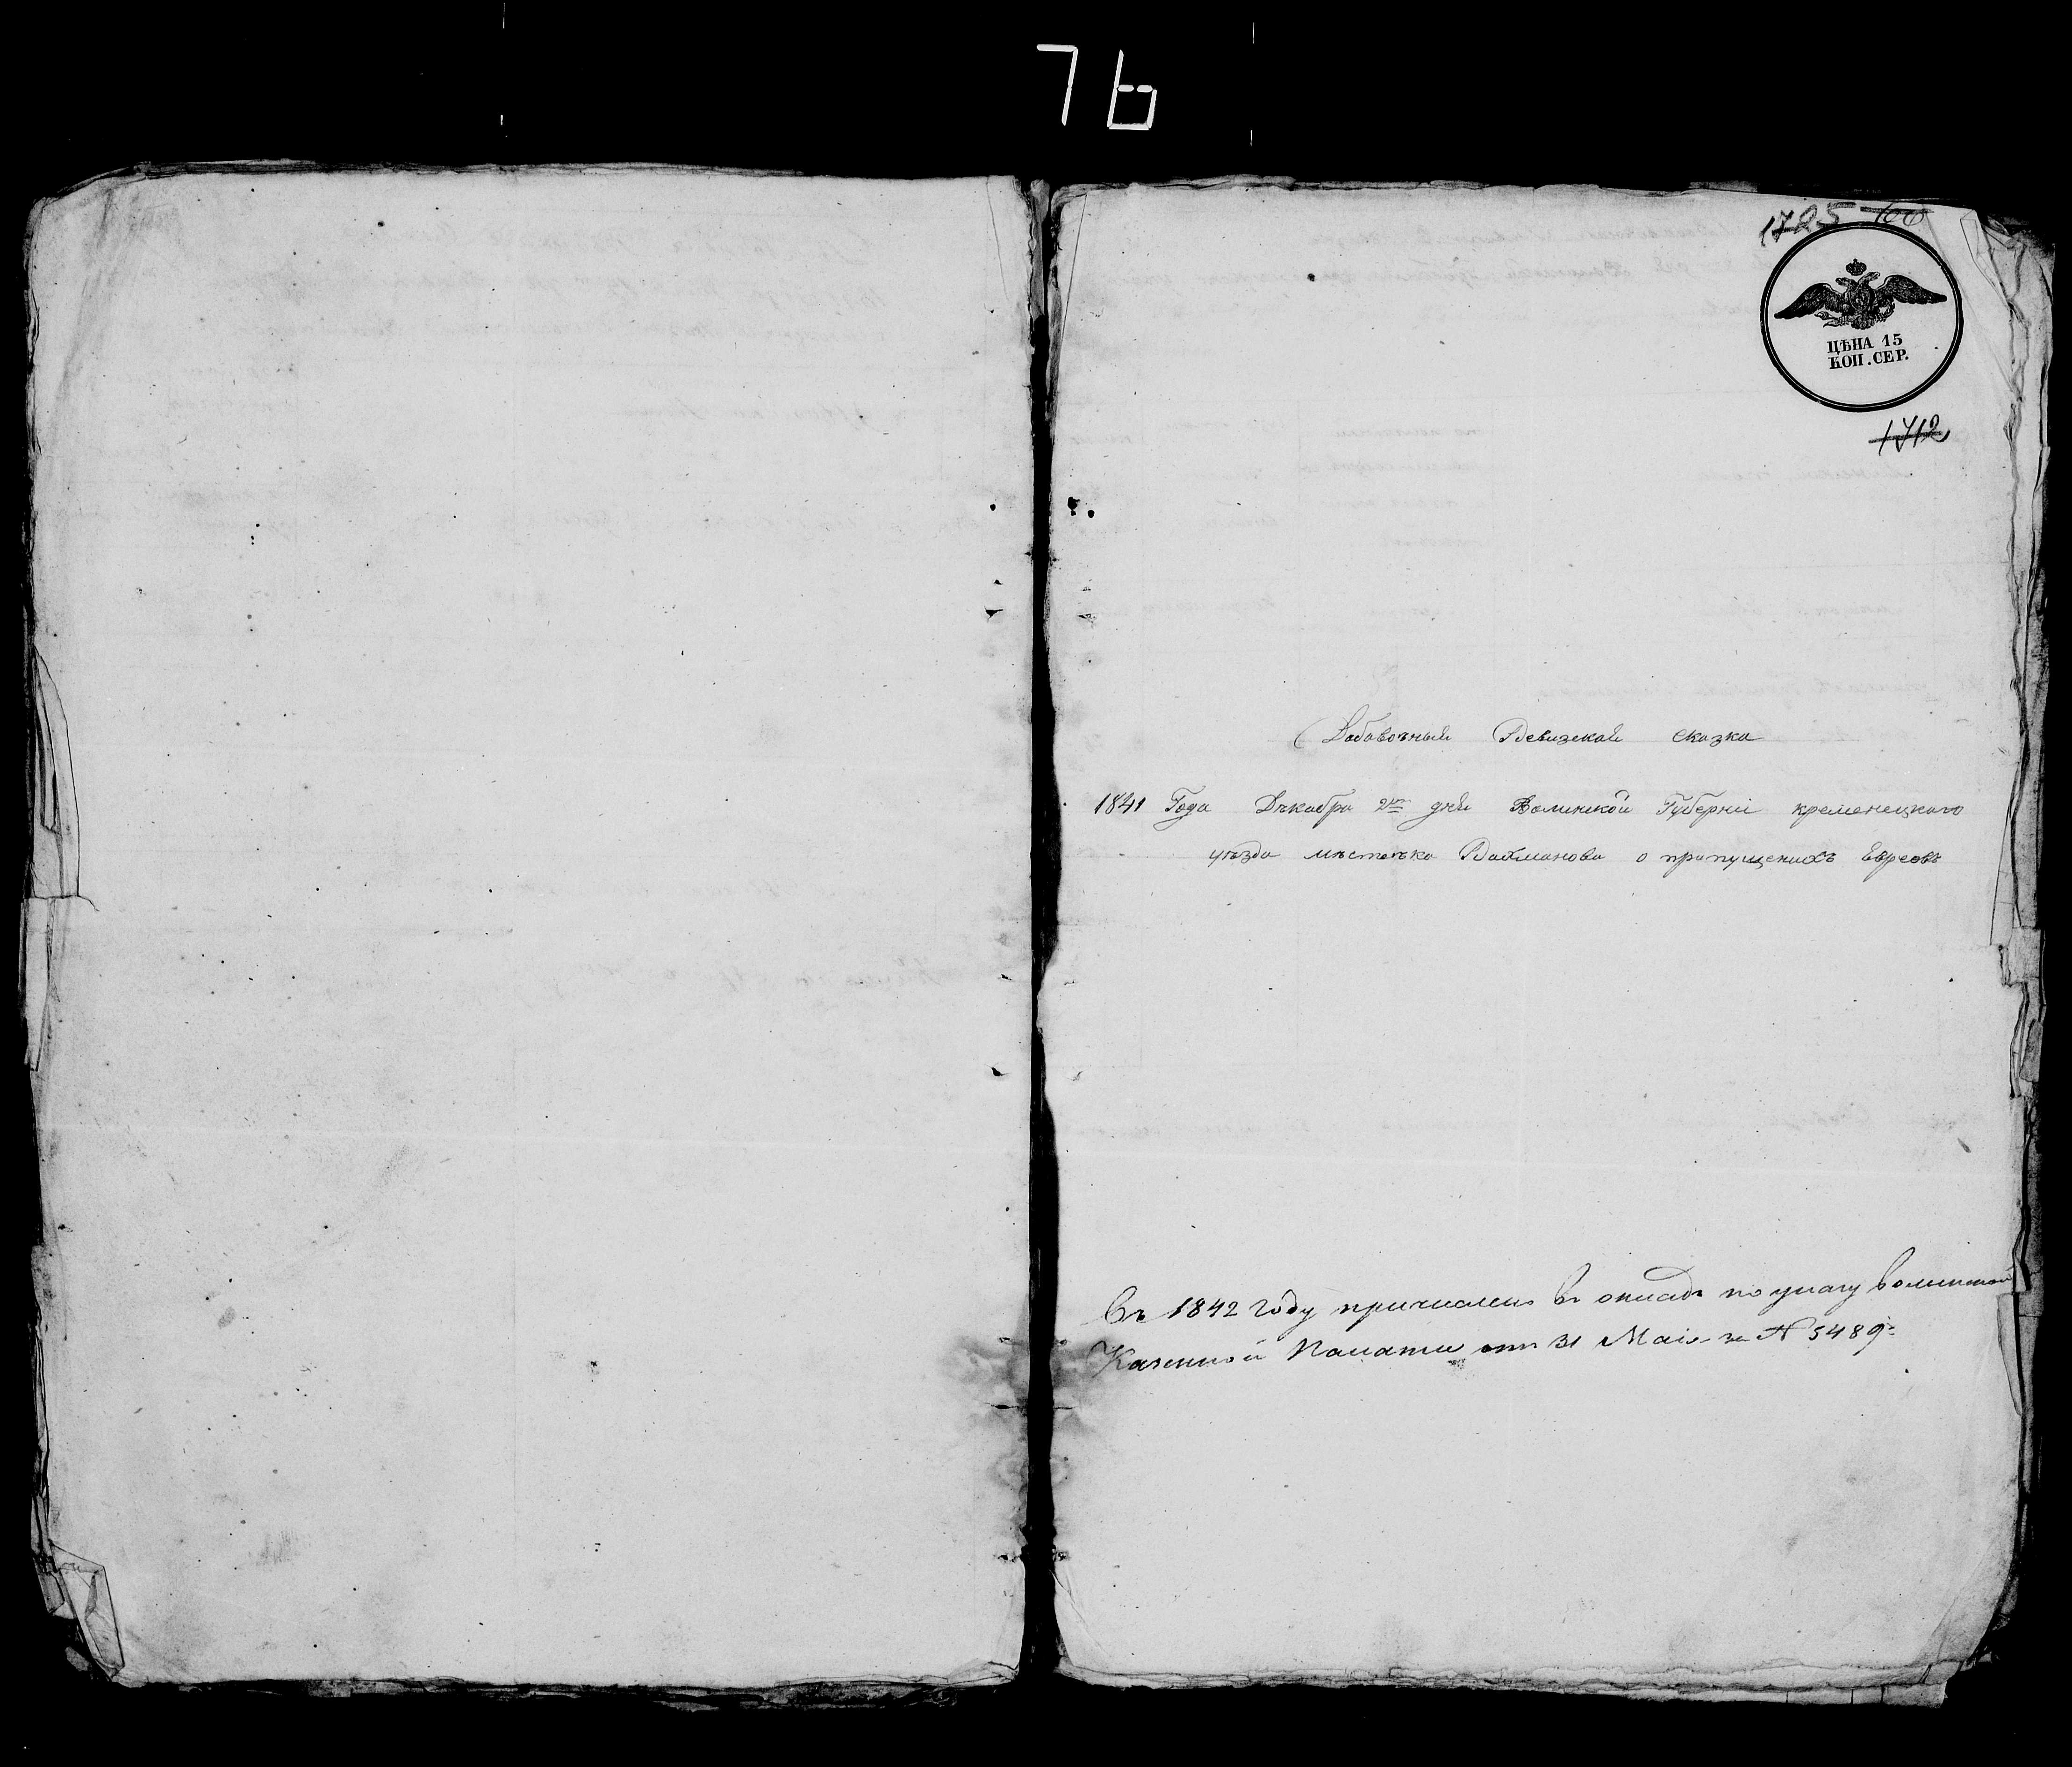 76
1725
ЦѢНА 15
КОП. СЕР.
1712
Добавочный Ревизской сказка
1841 Года Дѣкабря 2го дня Волинской Губерніи кременецкаго
уѣзда мѣстечка Рахманова о пропущенихъ Евреовъ
Съ 1842 году причислено въ окладъ по указу Волынской
Казенной Палаты отъ 31 Маія за № 5489.